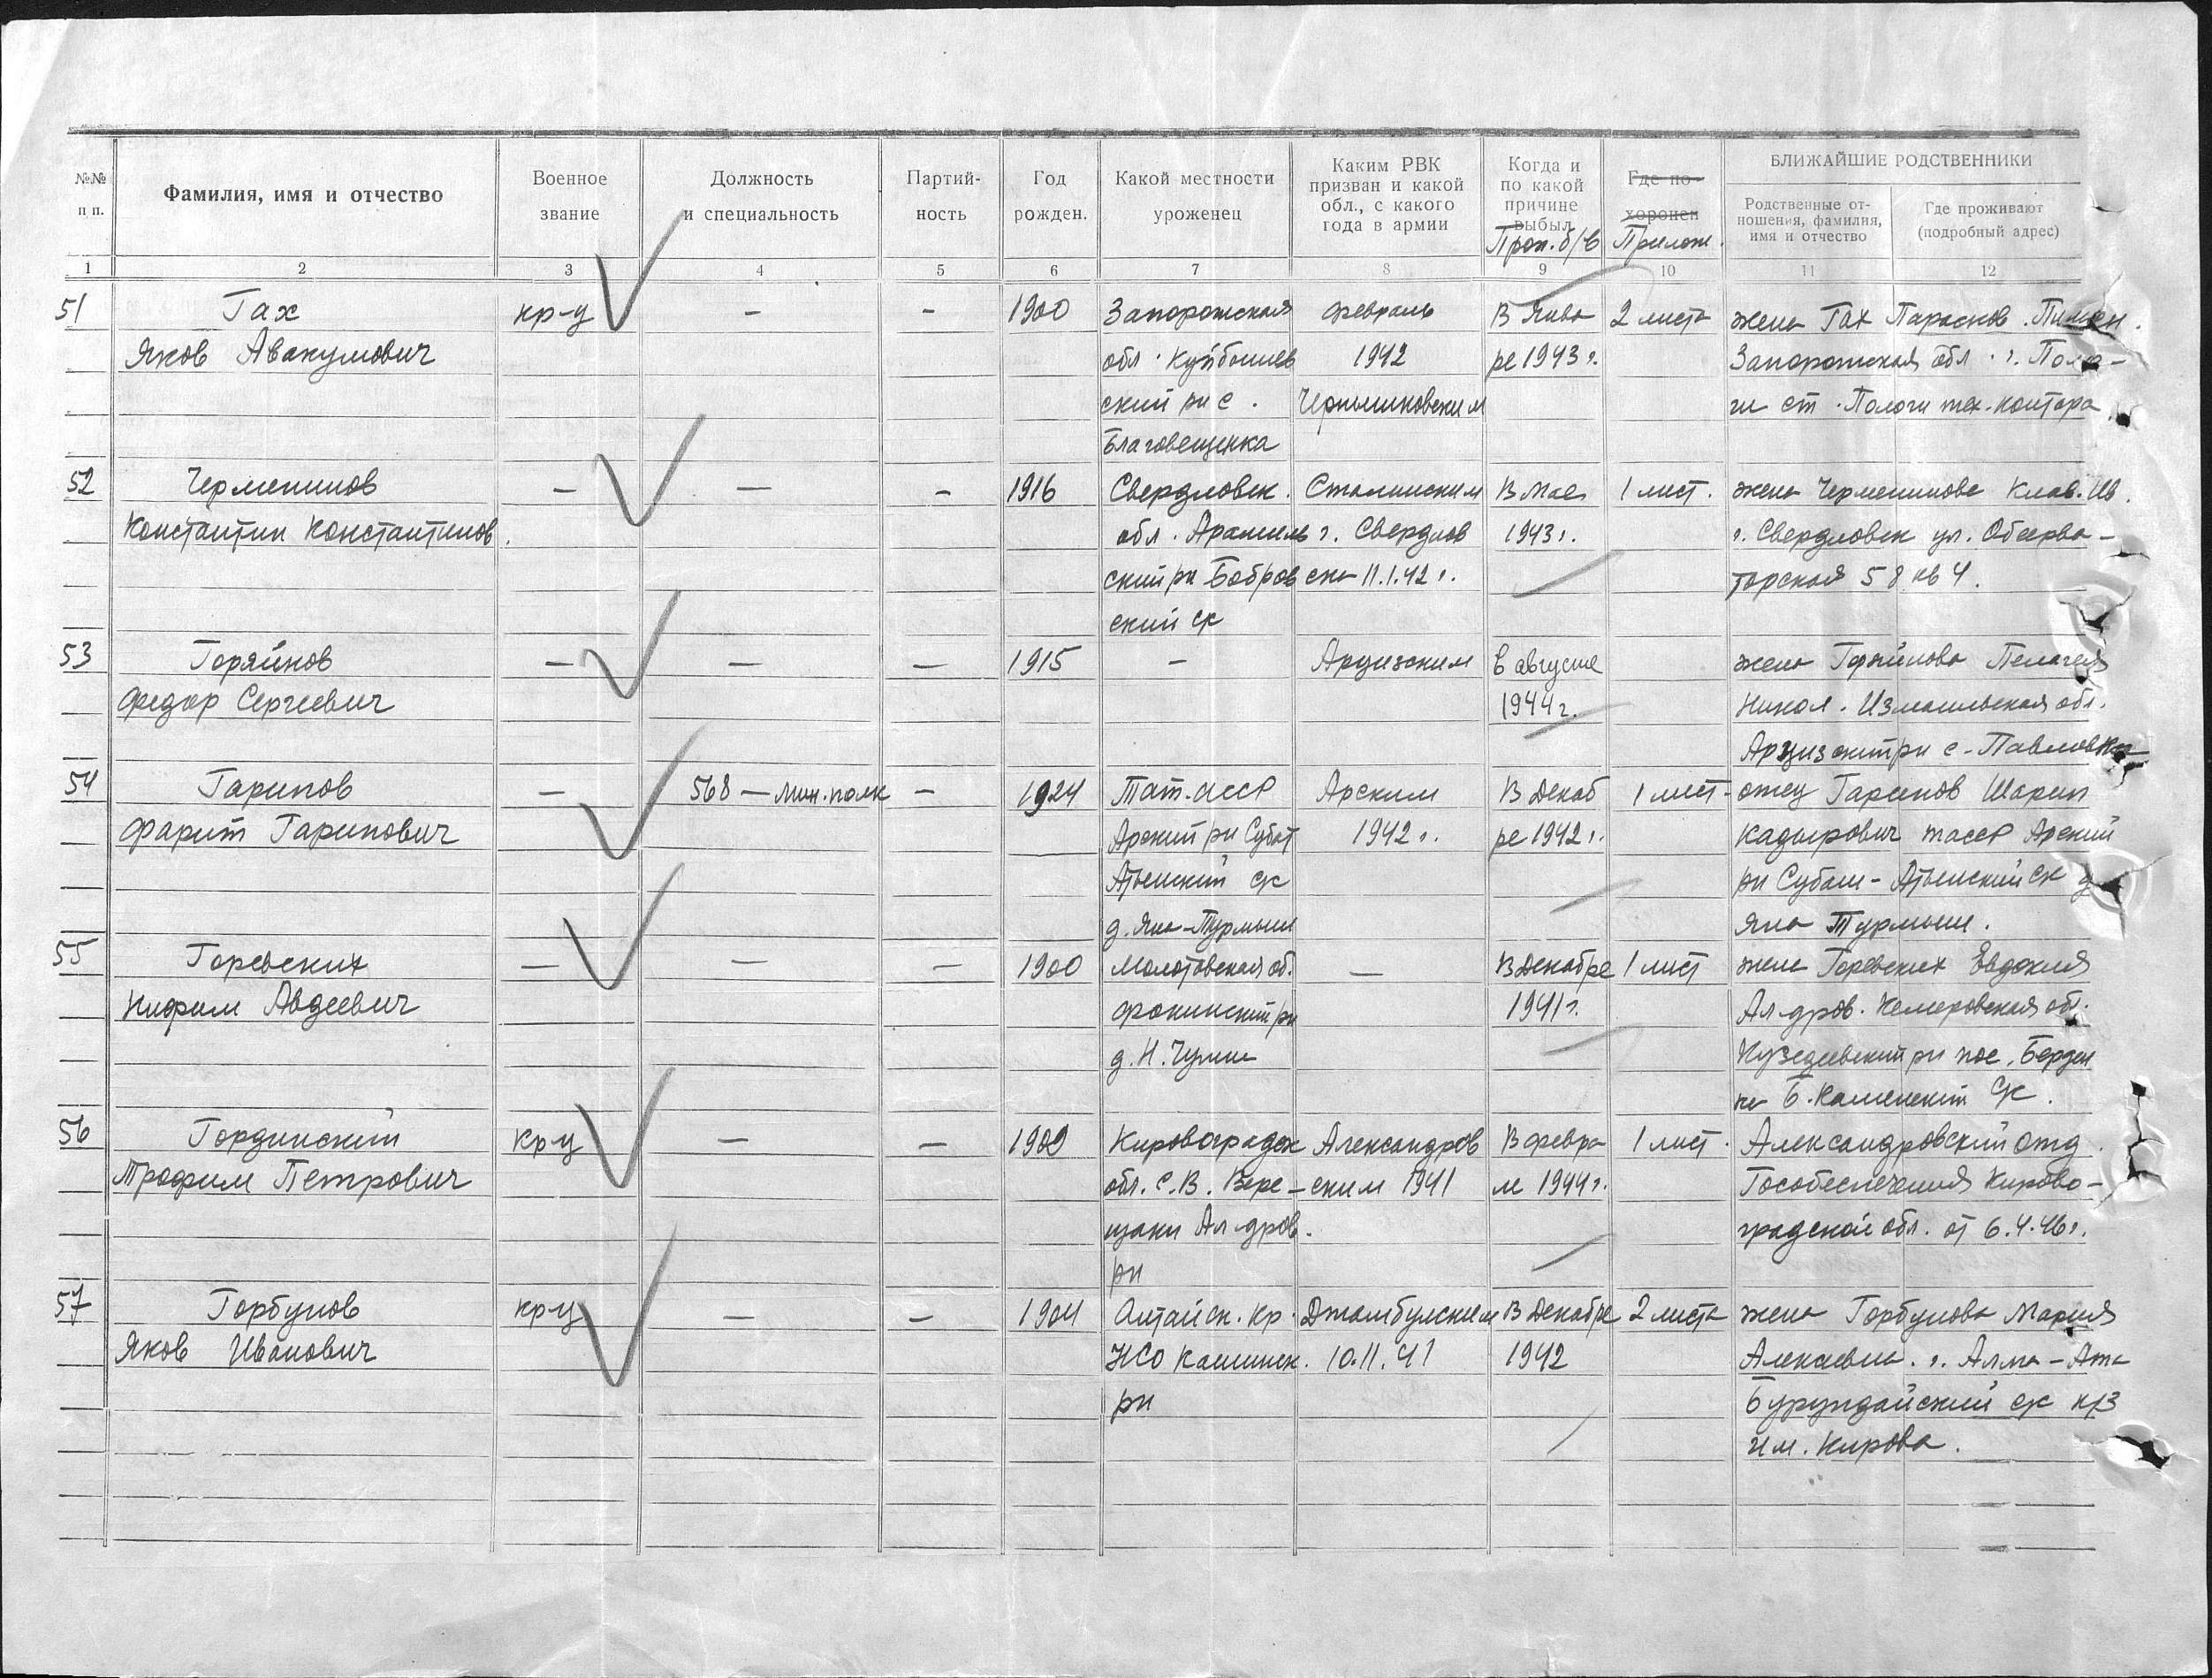 №№ п п.
Фамилия, имя и отчество
Военное звание
Должность и специальность
Партий-
ность
Год рожден.
Какой местности уроженец
Каким РВК
призван и какой
обл., с какого
года в армии
Когда и
по какой
причине
выбыл
Проп. б/в
Где по-
хоронен
Прилож.
БЛИЖАЙШИЕ РОДСТВЕННИКИ
Родственные от-
ношения, фамилия,
имя и отчество
Где проживают
(подробный адрес)
1 2 3 4 5 6 7 8 9 10 11 12
51 Гах кр-ц — — 1900 Запорожская февраль В Янва 2 листа жена Гах Парасков.
Яков Авакумович обл. Куйбышев 1942 ре 1943 г. Запорожская обл. г. Поло-
ский рн с. Чернышковским ги ст. Пологи тех. контора
Благовещенка
52 Черменинов — — — 1916 Свердловск. Сталинским В Мае 1 лист. жена Черменинова Клав. Ив.
Константин Константинов. обл. Арамиль г. Свердлов 1943 г. г. Свердловск ул. Обсерва-
ский рн Бобров ска 11.1.42 г. торская 58 кв 4.
ский ск
53 Горяйнов — — — 1915 — Арцизским в августе жена Горяйнова Пелагея
Федор Сергеевич 1944 г. Никол. Измаильская обл.
Арцизский рн с. Павловка
54 Гарипов — 568 — мин. полк — 1924 Тат. АССР Арским В Декаб 1 лист- отец Гарипов Шарип
Фарит Гарипович Арский рн Субаш 1942 г. ре 1942 г. Кадырович ТАССР Арский
Атынский ск рн Субаш-Атынский ск д
д. Яна-Турмыш Яна Турмыш.
55 Горевских — — — 1900 Молотовская об. — В Декабре 1 лист жена Горевских Евдокия
Авдеевич Фокинский рн 1941 г. Ал-дров. Кемеровская обл.
д. Н. Кузедеевский рн пос.
Б. Каменский ск.
56 Гординский кр-ц — — 1909 Кировоградск Александров В февра 1 лист. Александровский отд.
Трофим Петрович обл. с. В. Вере- ским 1941 ле 1944 г. Гособеспечения Кирово-
щаки Ал-дров. градской обл. от 6.4.46 г.
рн
57 Горбунов кр-ц — — 1904 Алтайск. кр. Джамбулским В Декабре 2 листа жена Горбунова Мария
Яков Иванович НСО 10.11.41 1942 Алексеевна. г. Алма-Ата
рн Бурундайский ск к/з
им. Кирова.